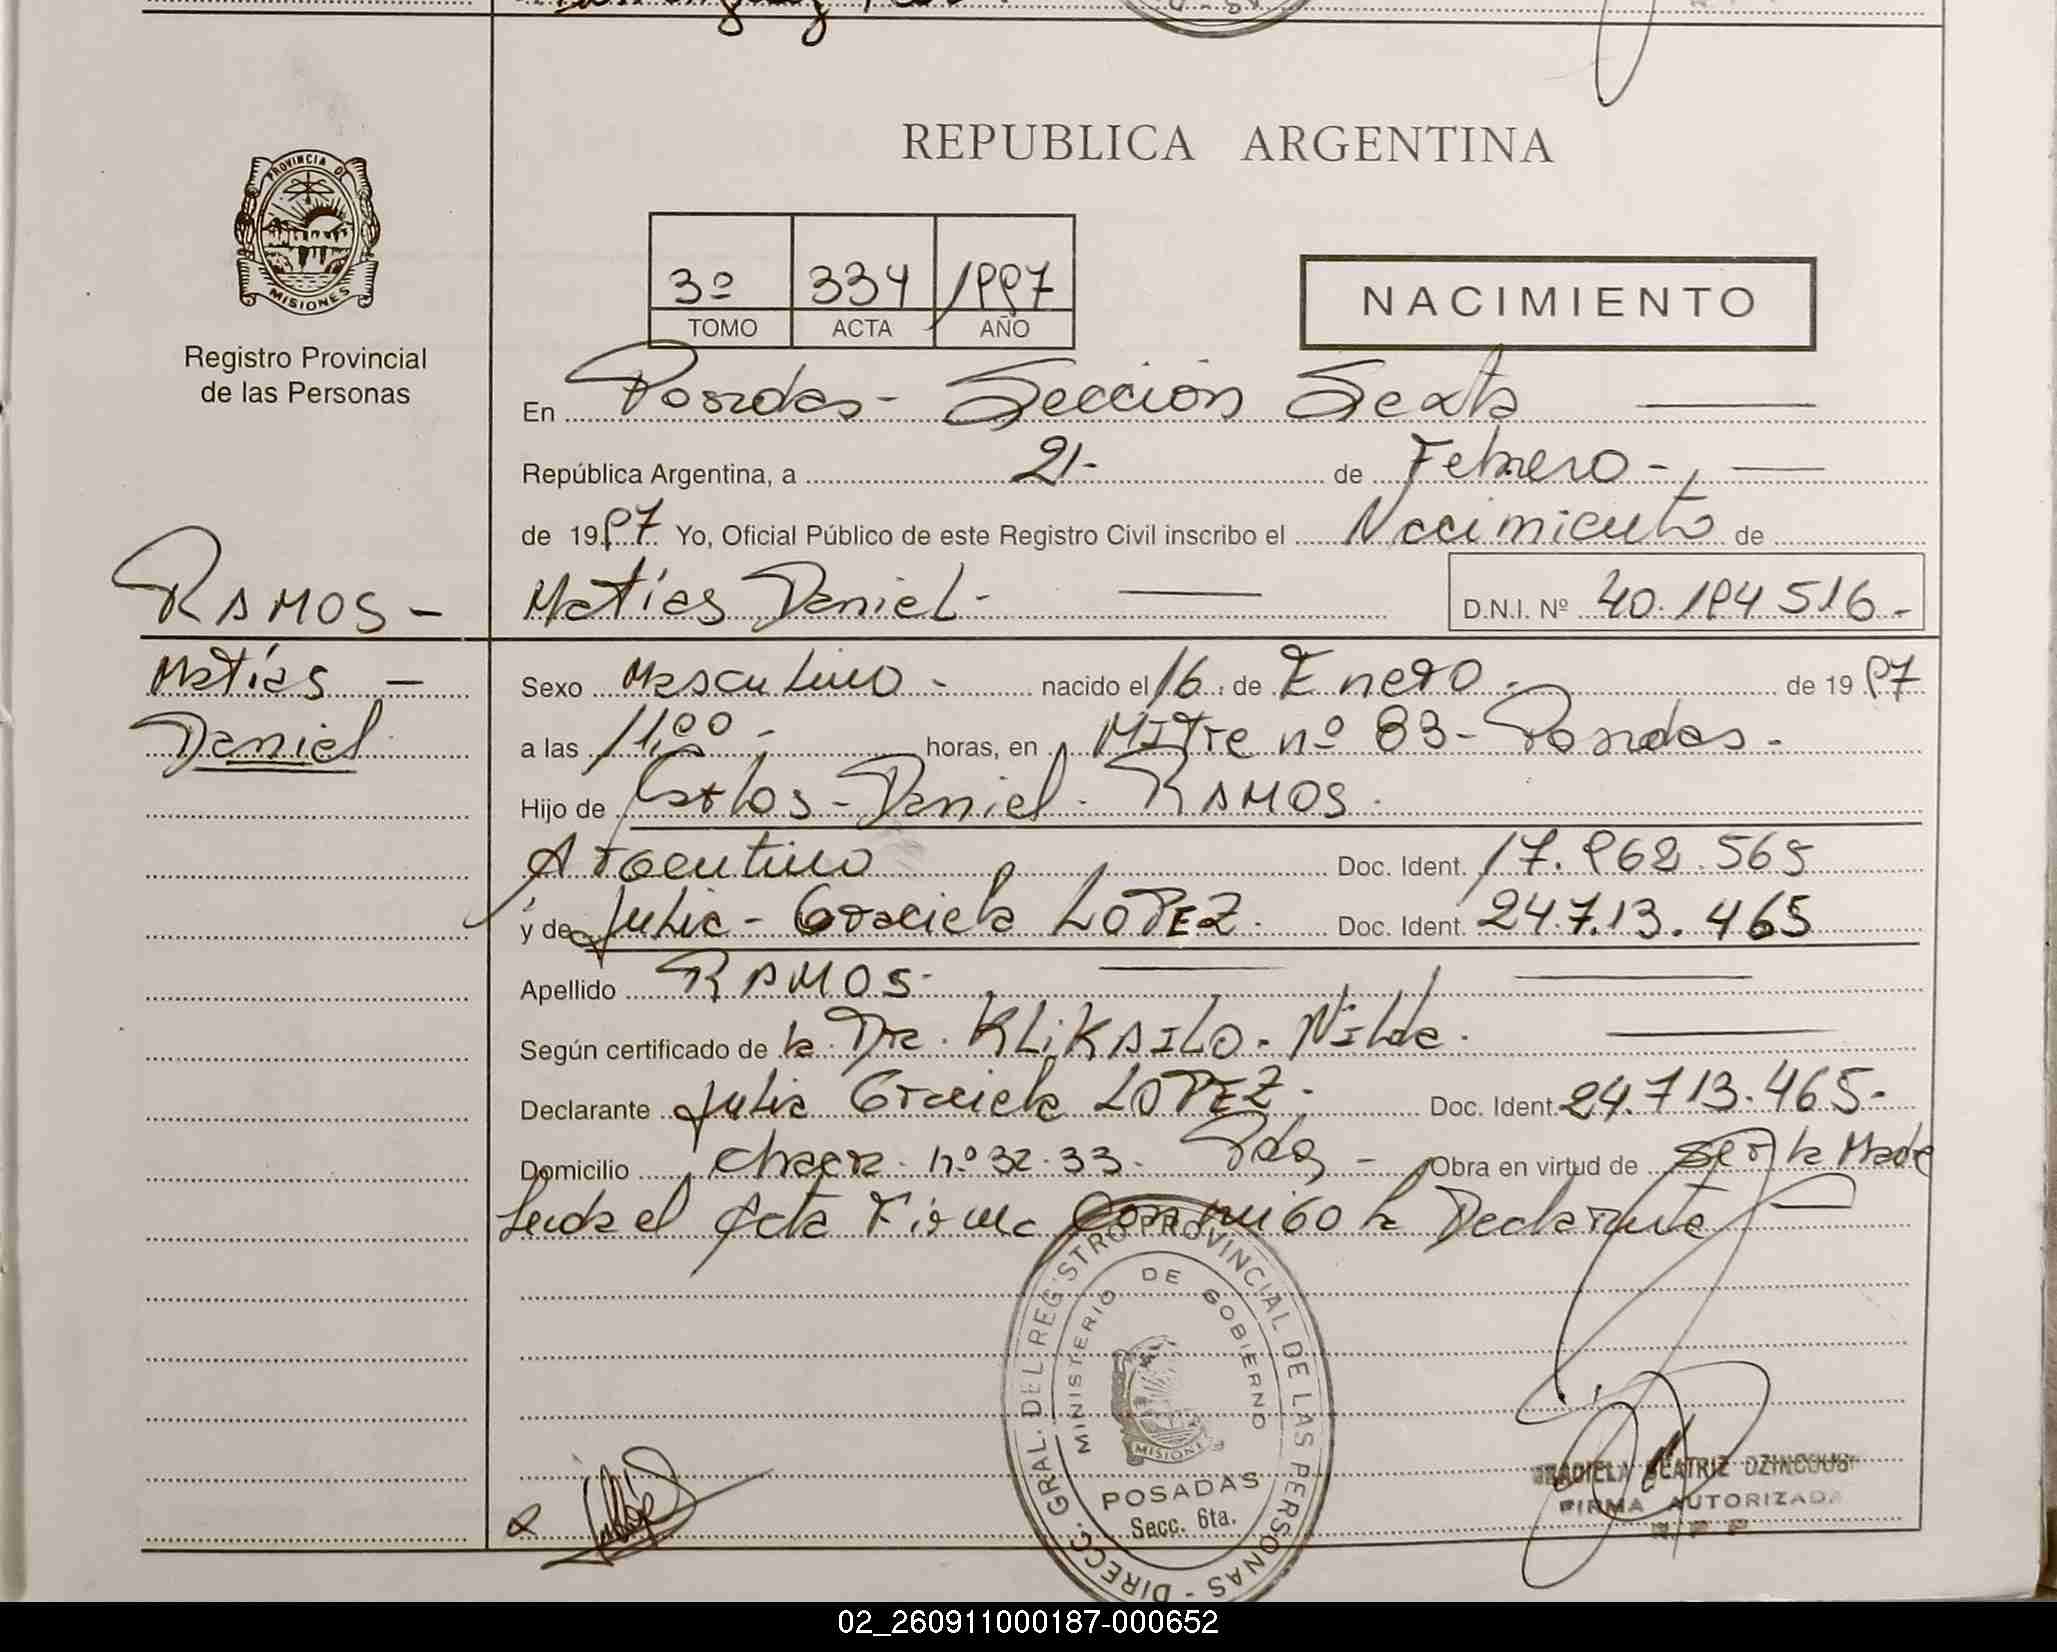 PROVINCIA DE
MISIONES
Registro Provincial
de las Personas
REPUBLICA ARGENTINA
3º 334 1997
TOMO ACTA AÑO
NACIMIENTO
En Posadas - Sección Sexta
República Argentina, a 21- de Febrero -
de 1997 Yo, Oficial Público de este Registro Civil inscribo el Nacimiento de
RAMOS - Matías Daniel - D.N.I. Nº 40.194516.-
Matías - Sexo Masculino - nacido el 16 de Enero - de 1997
Daniel a las 11,00 - horas, en Mitre nº 83 - Posadas -
Hijo de Carlos - Daniel - RAMOS -
Argentino Doc. Ident. 17.962.565
y de Julia - Graciela LOPEZ - Doc. Ident. 24.713.465
Apellido RAMOS -
Según certificado de la Dra. KLiKAILO - Nilda.
Declarante Julia Graciela LOPEZ - Doc. Ident. 24.713.465-
Domicilio Chacra nº 32-33. Pdas - Obra en virtud de Ser la Madre
Leida el Acta Firma Conmigo la Declarante
DIRECC. GRAL. DEL REGISTRO PROVINCIAL DE LAS PERSONAS -
MINISTERIO DE GOBIERNO
MISIONES
POSADAS
Secc. 6ta.
BEATRIZ
FIRMA AUTORIZADA
02_260911000187-000652